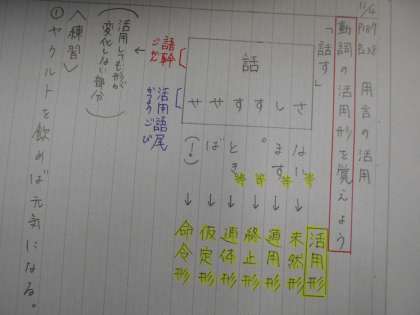 11/4
用言の活用
動詞の活用形を覚えよう
「話す」
活用形
話
さ ない等 → 未然形
し ます等 → 連用形
す 。等 → 終止形
す とき等 → 連体形
せ ば → 仮定形
せ (!) → 命令形
語幹
ごかん
活用語尾
かつようごび
(活用しても形が
変化しない部分)
〈練習〉
①ヤクルトを飲めば元気になる。